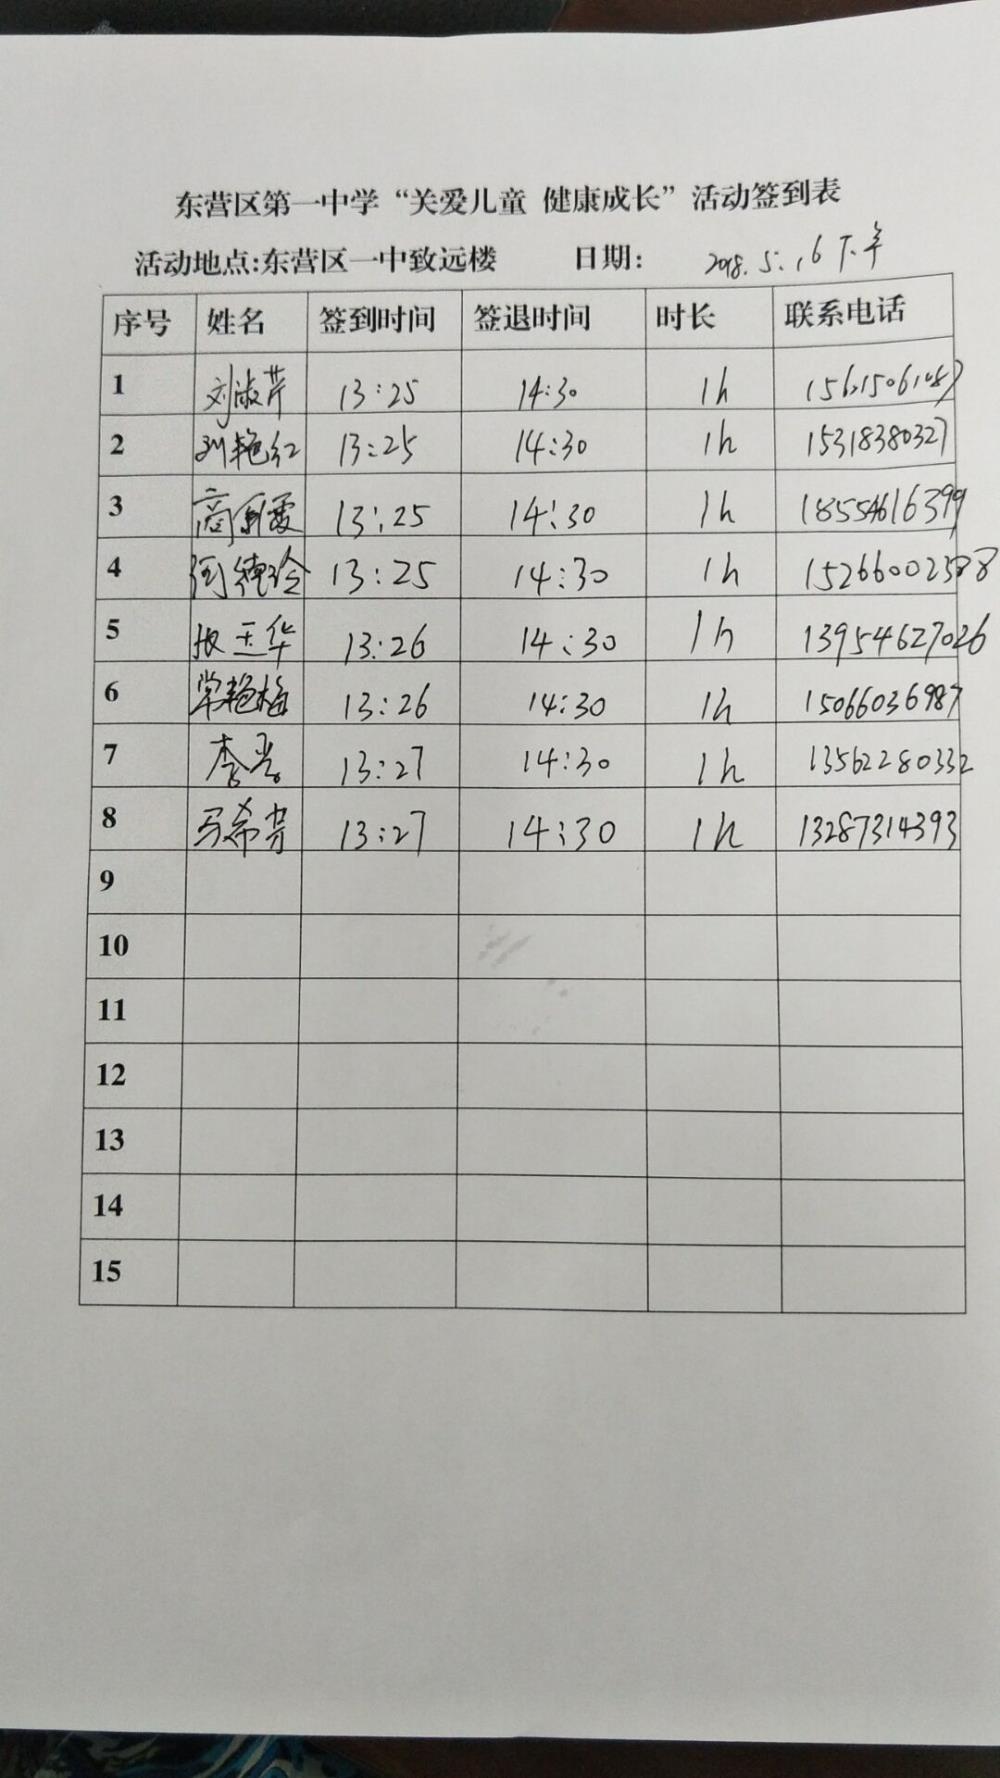 东营区第一中学“关爱儿童 健康成长”活动签到表
活动地点:东营区一中致远楼 日期: 2018.5.16下午
序号 姓名 签到时间 签退时间 时长 联系电话
1 刘淑芹 13:25 14:30 1h
2 刘艳红 13:25 14:30 1h 15318380327
3 商 霞 13:25 14:30 1h 18554616399
4 13:25 14:30 1h 15266002588
5 张玉华 13:26 14:30 1h 13954627026
6 常艳梅 13:26 14:30 1h 15066036987
7 李 13:27 14:30 1h 13562280332
8 马希芳 13:27 14:30 1h 13287314393
9
10
11
12
13
14
15